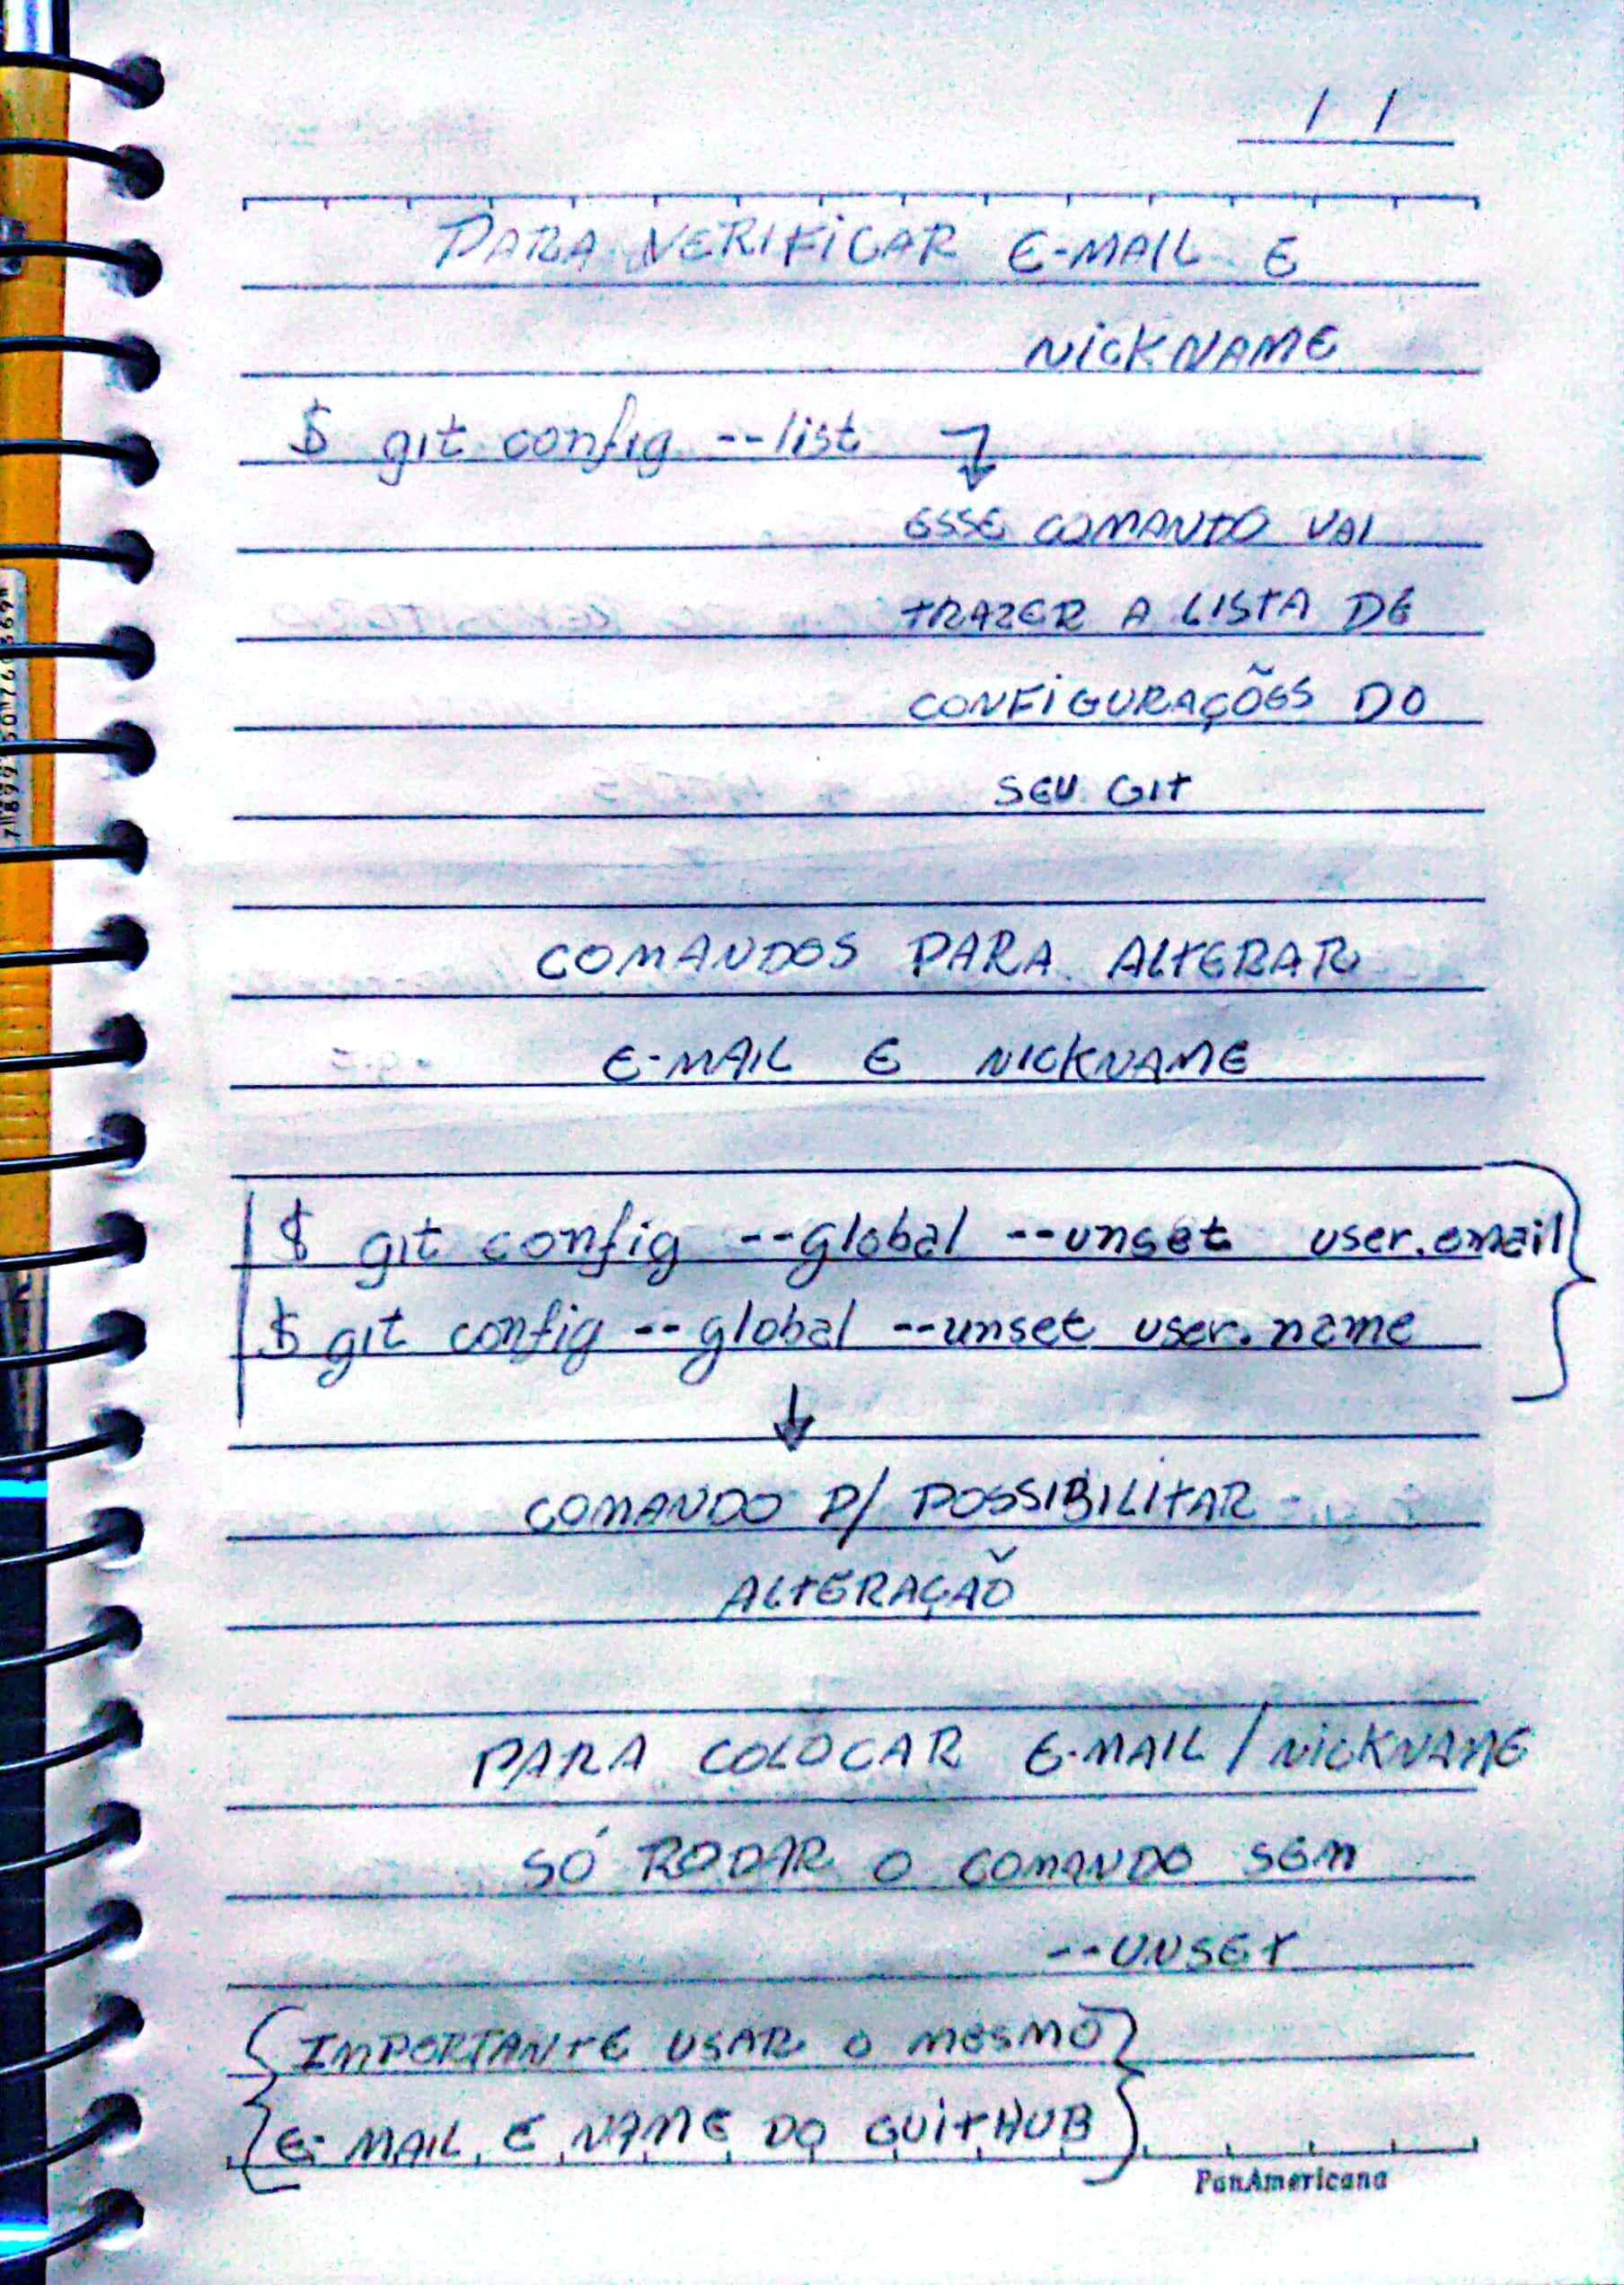 / /
PARA VERIFICAR E-MAIL E
NICKNAME
$ git config --list
ESSE COMANDO VAI
TRAZER A LISTA DE
CONFIGURAÇÕES DO
SEU GIT
COMANDOS PARA ALTERAR
E-MAIL E NICKNAME
$ git config --global --unset user.email
$ git config --global --unset user.name
COMANDO P/ POSSIBILITAR
ALTERAÇÃO
PARA COLOCAR E-MAIL / NICKNAME
SÓ RODAR O COMANDO SEM
--UNSET
IMPORTANTE USAR O MESMO
E-MAIL E NAME DO GUITHUB
PanAmericana